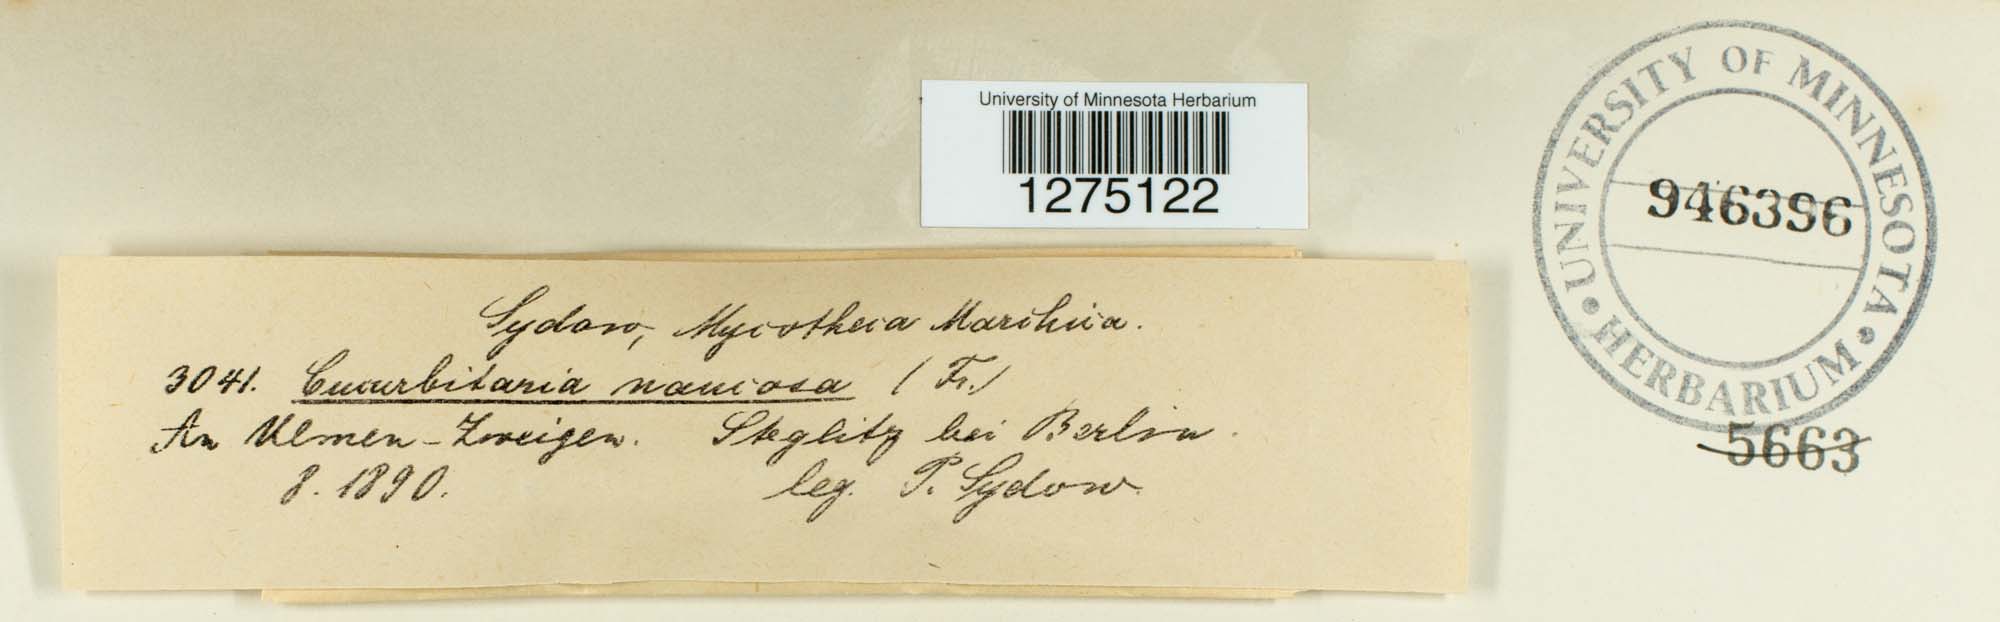 University of Minnesota Herbarium
1275122
UNIVERSITY OF MINNESOTA
HERBARIUM
946396
5663
Sydow, Mycotheca Marchica.
3041. Cucurbitaria naucosa (Fr.)
An Ulmen-Zweigen. Steglitz bei Berlin.
8. 1890. leg. P. Sydow.